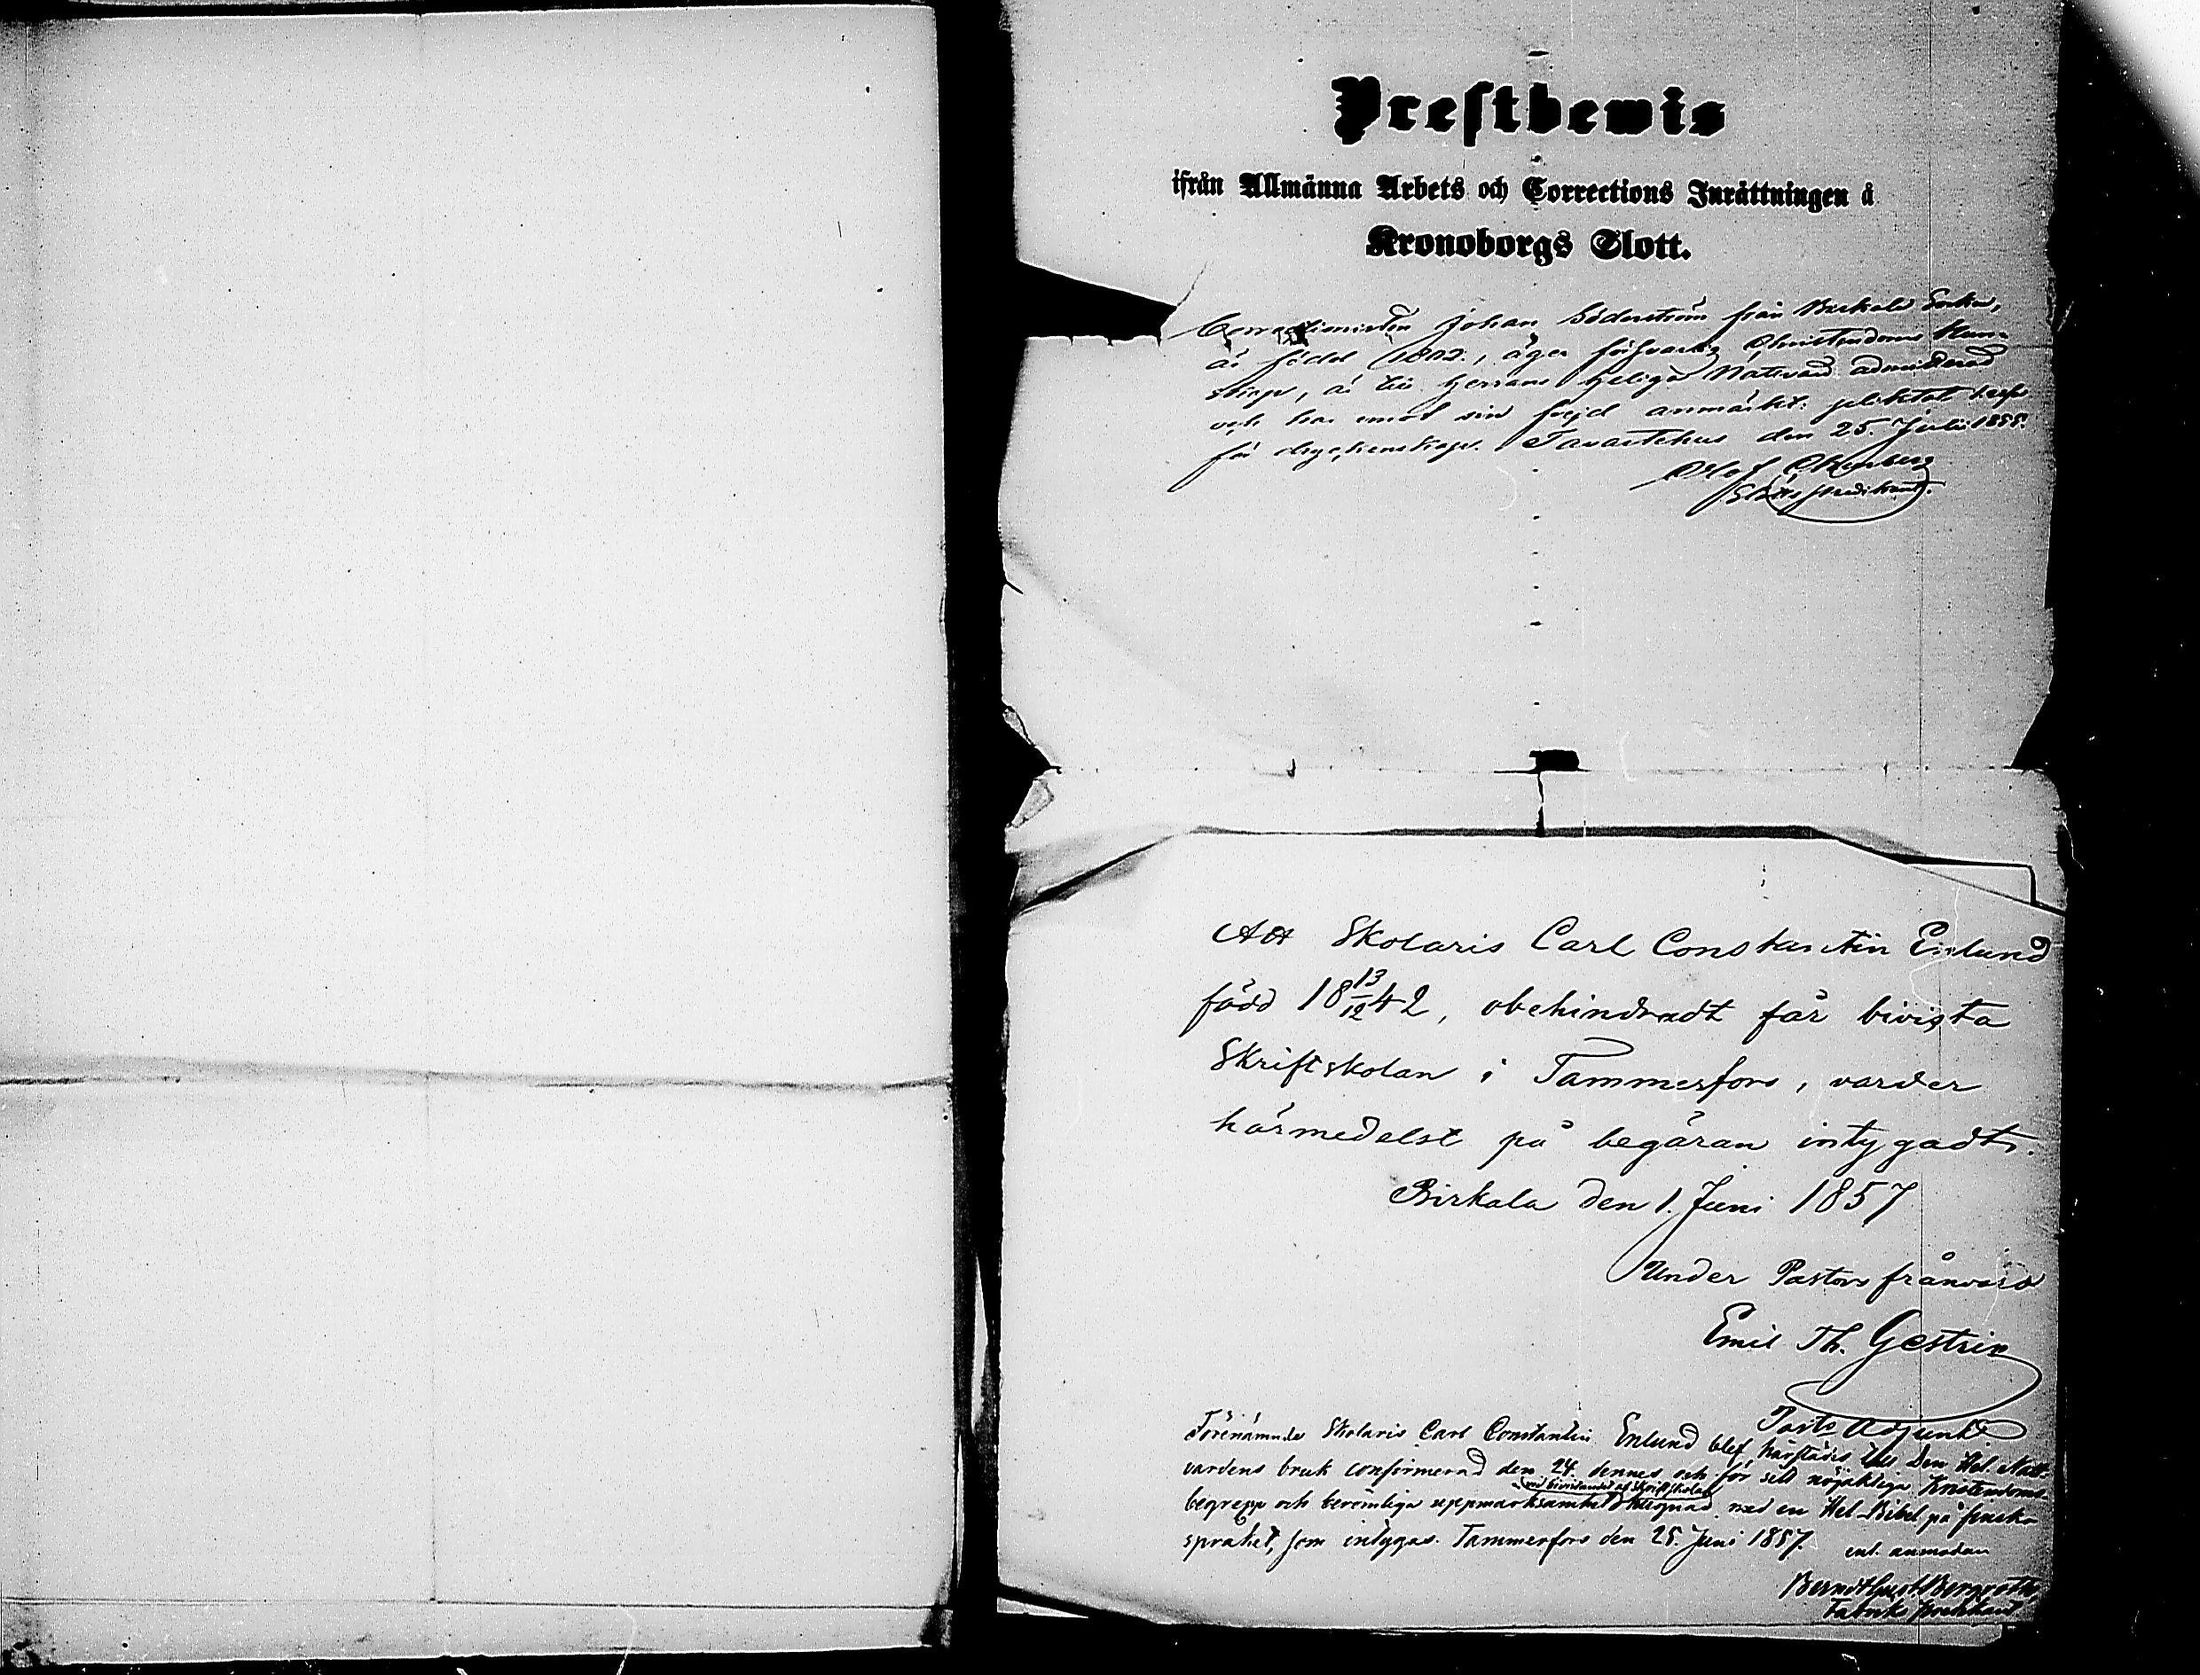 Prestbewis
ifrån Allmänna Arbets och Corrections Inrättningen å
Kronoborgs Slott.
Correctionisten Johan Söderström från Birkala Socken,
är född 1802., äger försvarlig Christendoms kun-
skap, är till Herrans Heliga Nattvard admitterad
och har emot sin frejd anmärkt: pliktat
för dryckenskap. Tavastehus den 25. Julii 1855.
Olof
Slotts predikant.
Att Skolaris Carl Constantin Enlund
född 18 13/12 42, obehindradt får bivista
Skriftskolan i Tammerfors, varder
härmedelst på begäran intygadt.
Birkala den 1. Juni 1857
Under Pastors frånvaro
Emil Th. Gestrin
Past. Adjunkt.
Förenämnde Skolaris Carl Constantin Enlund blef härstädes till Den Hel. Natt-
vardens bruk confirmerad den 24. dennes och för sitt nöjaktiga Kristendoms-
vid bivistandet af Skriftskolan
begrepp och berömliga uppmärksamhet hugnad med en Hel. Bibel på finska
språket, som intygas. Tammerfors den 25. Juni 1857.
enl. anmodan
Berndt Gust. Bergroth
Fabriks predikant